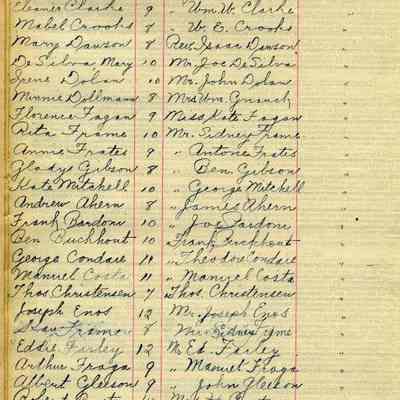 Eleanor Clarke 9 " Wm. W. Clarke "
Mabel Crooks 8 " W. E. Crooks "
Mary Dawson 8 Rev. Isaac Dawson "
De Silva, Mary 10 Mr. Joe De Silva "
Irene Dolan 10 Mr. John Dolan "
Minnie Dollmann 8 Mrs Wm.
Florence Fagan 9 Miss Kate Fagan "
Rita Frame 10 Mr. Sidney Frame "
Annie Frates 9 " Antone Frates "
Gladys Gibson 8 " Ben. Gibson "
Kate Mitchell 10 " George Mitchell "
Andrew Ahern 8 " James Ahern "
Frank Bardoni 10 " Joe Bardoni "
Ben Buchhout 10 Frank Buchhout "
George Condare 14 " Theodore Condare "
Manuel Costa 11 " Manuel Costa "
Thos. Christensen 7 Thos. Christensen "
Joseph Enos 12 Mr. Joseph Enos "
8
Eddie Farley 12 Mr Ed. Farley "
Arthur Fraga 9 " Manuel Fraga "
Albert Gleeson 9 " John Gleeson "